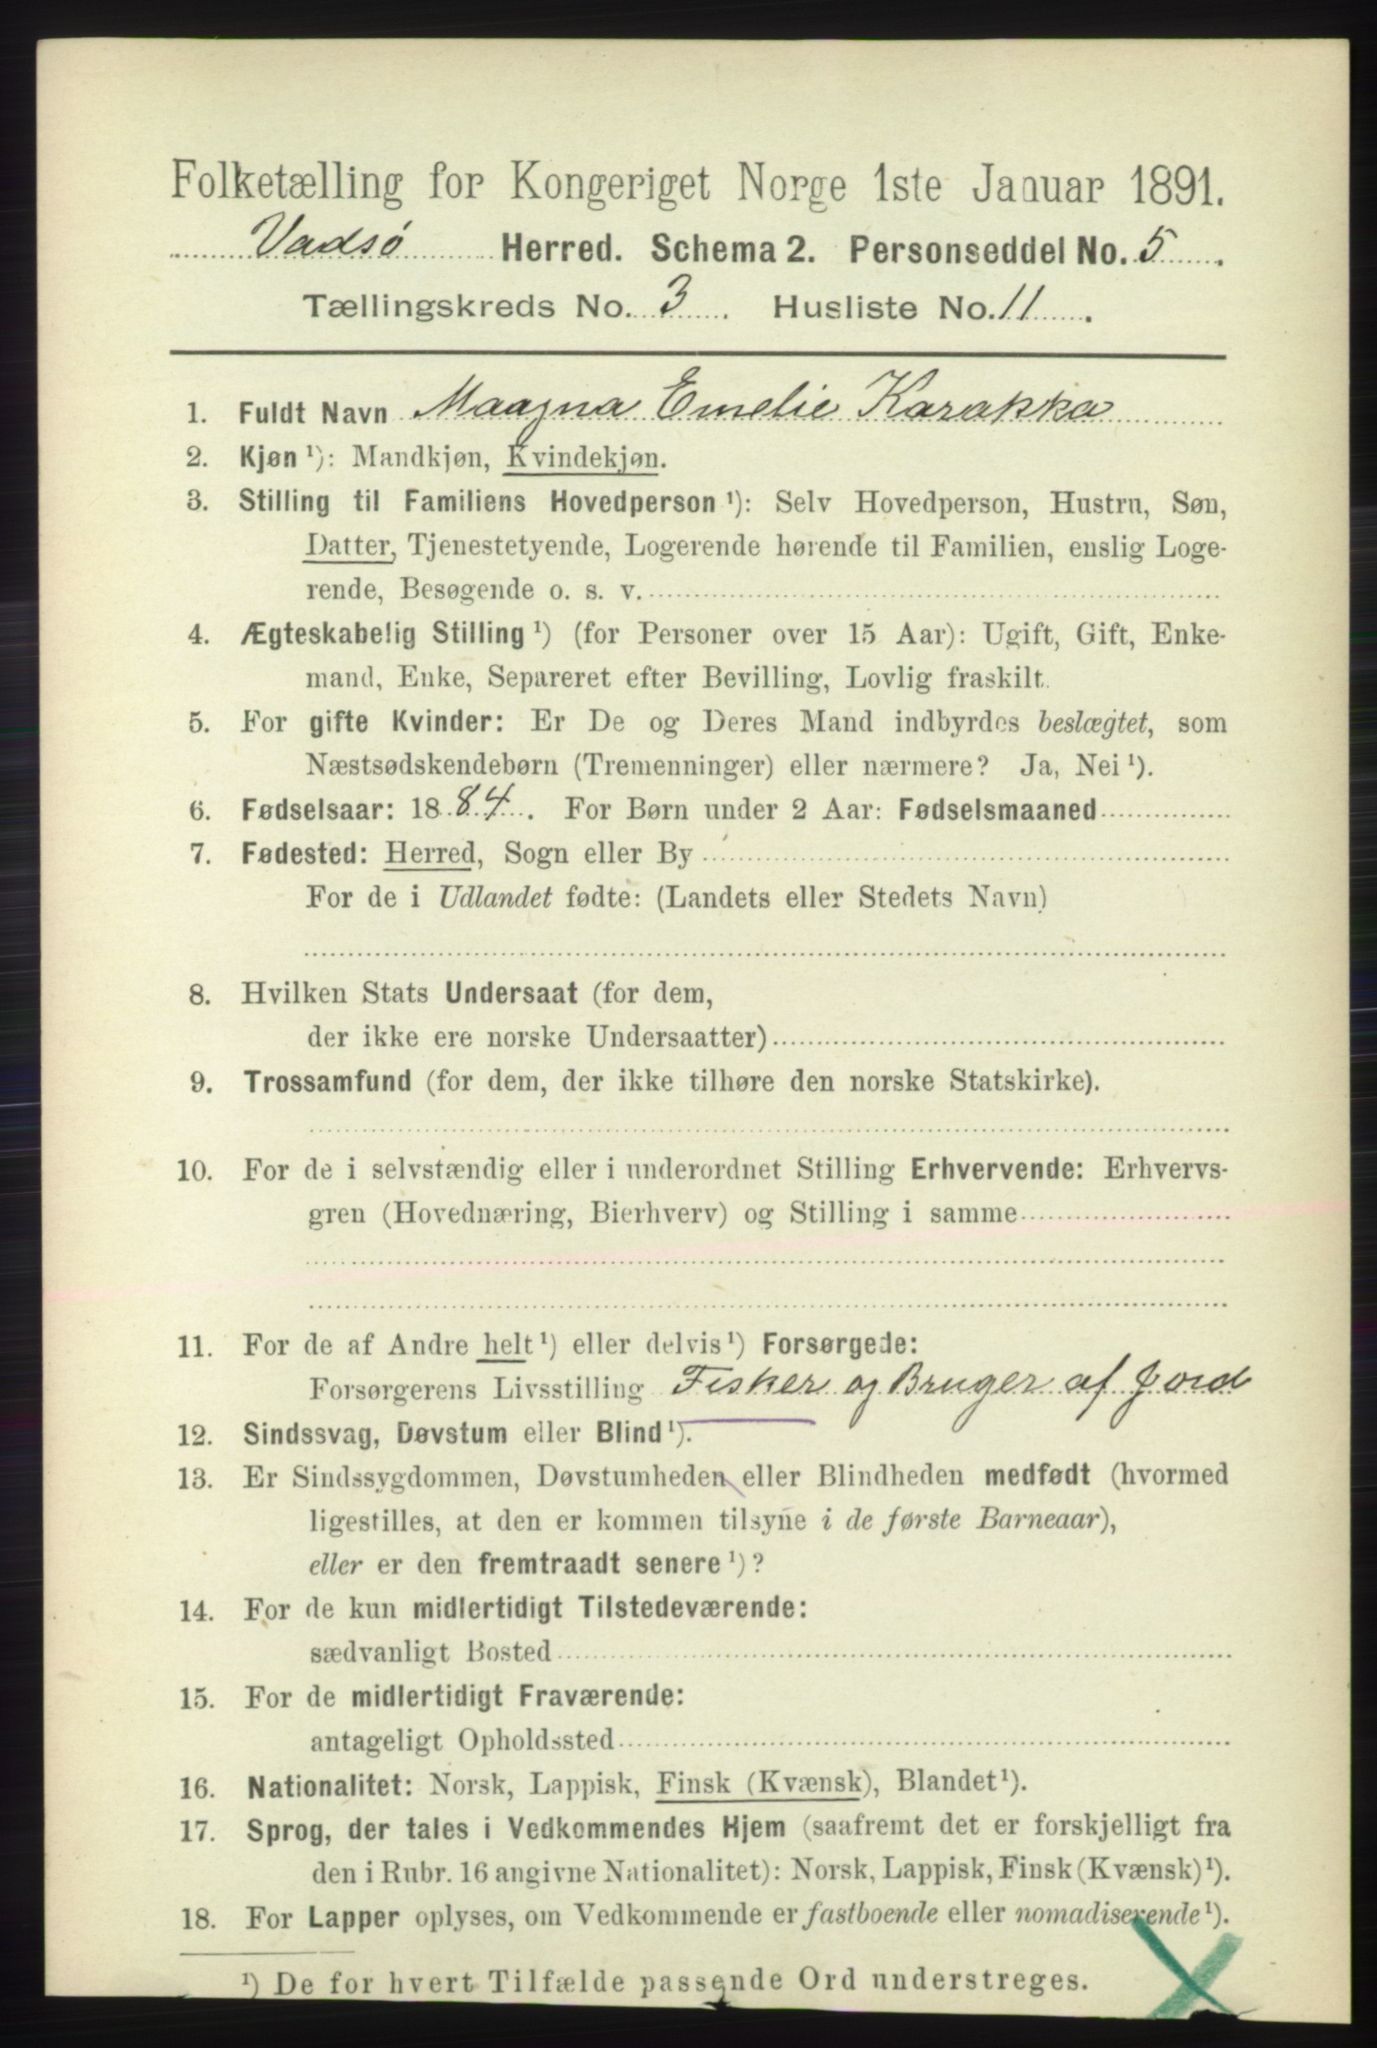 Folketælling for Kongeriget Norge 1ste Januar 1891.
Vadsø Herred. Schema 2. Personseddel No. 5.
Tællingskreds No. 3. Husliste No. 11.
1. Fuldt Navn Maagna Emelie Karakka
2. Kjøn ¹): Mandkjøn, Kvindekjøn.
3. Stilling til Familiens Hovedperson ¹): Selv Hovedperson, Hustru, Søn,
Datter, Tjenestetyende, Logerende hørende til Familien, enslig Loge-
rende, Besøgende o. s. v.
4. Ægteskabelig Stilling ¹) (for Personer over 15 Aar): Ugift, Gift, Enke-
mand, Enke, Separeret efter Bevilling, Lovlig fraskilt.
5. For gifte Kvinder: Er De og Deres Mand indbyrdes beslægtet, som
Næstsødskendebørn (Tremenninger) eller nærmere? Ja, Nei ¹).
6. Fødselsaar: 1884. For Børn under 2 Aar: Fødselsmaaned
7. Fødested: Herred, Sogn eller By
For de i Udlandet fødte: (Landets eller Stedets Navn)
8. Hvilken Stats Undersaat (for dem,
der ikke ere norske Undersaatter)
9. Trossamfund (for dem, der ikke tilhøre den norske Statskirke).
10. For de i selvstændig eller i underordnet Stilling Erhvervende: Erhvervs-
gren (Hovednæring, Bierhverv) og Stilling i samme
11. For de af Andre helt ¹) eller delvis ¹) Forsørgede:
Forsørgerens Livsstilling Fisker og Bruger af Jord
12. Sindssvag, Døvstum eller Blind ¹).
13. Er Sindssygdommen, Døvstumheden eller Blindheden medfødt (hvormed
ligestilles, at den er kommen tilsyne i de første Barneaar),
eller er den fremtraadt senere ¹)?
14. For de kun midlertidigt Tilstedeværende:
sædvanligt Bosted
15. For de midlertidigt Fraværende:
antageligt Opholdssted
16. Nationalitet: Norsk, Lappisk, Finsk (Kvænsk), Blandet ¹).
17. Sprog, der tales i Vedkommendes Hjem (saafremt det er forskjelligt fra
den i Rubr. 16 angivne Nationalitet): Norsk, Lappisk, Finsk (Kvænsk) ¹).
18. For Lapper oplyses, om Vedkommende er fastboende eller nomadiserende ¹).
¹) De for hvert Tilfælde passende Ord understreges.